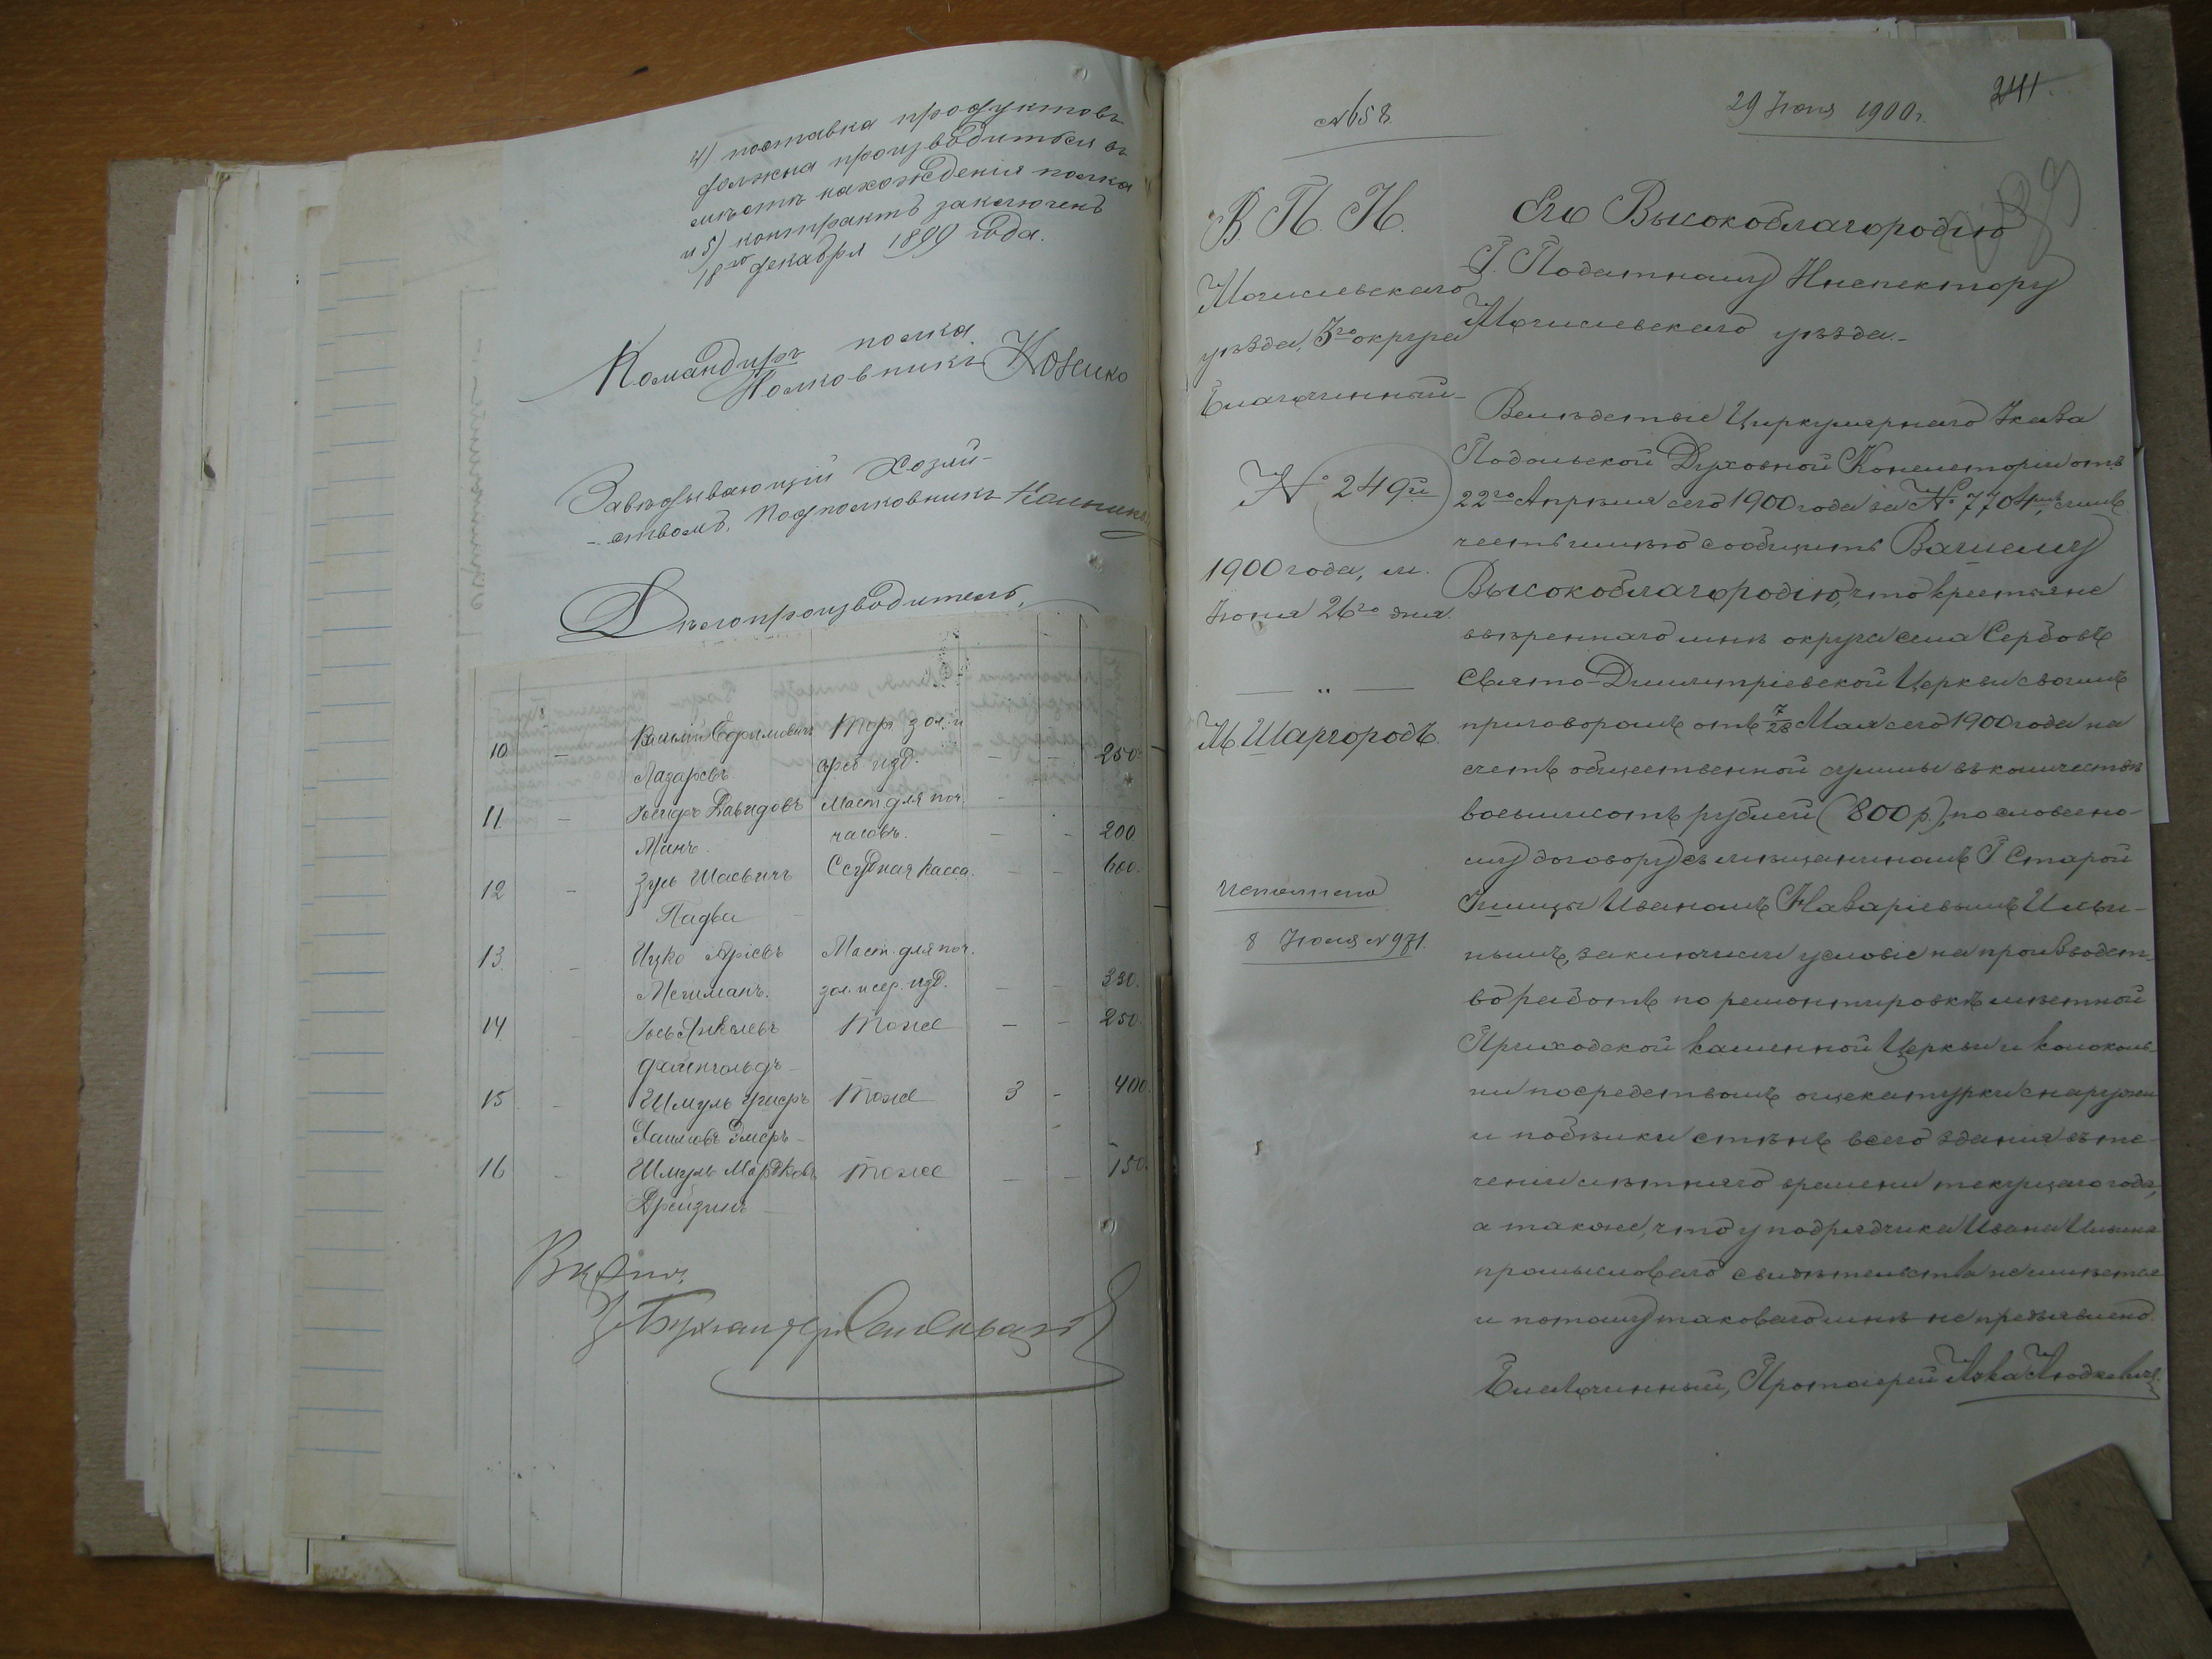 4) поставка продуктовъ
должна производиться въ
мѣстѣ нахожденія полка
и 5) контрактъ заключенъ
18го декабря 1899 года.
Командиръ полка
Полковникъ
Завѣдывающій Хозяй-
-ствомъ, Подполковникъ
Дѣлопроизводитель,
10 — Василій Ефримовичъ Торг. зол. и
Лазаревъ сереб. изд. — — 250.
11 — Іосифъ Давидовъ Маст. для поч. —
Манъ. часовъ. — — 200
12 — Зусь Шаевичъ Ссудная касса. — — 600.
Падва
13 — Ицко Аріевъ Маст. для поч.
зол. и сер. изд. — — 330.
14 Іось Янкелевъ Тоже — — 250.
Файнгольдъ
15 Шмуль Тоже 3 — 400.
Хаимовъ
16 Шмуль Мордковъ Тоже — — 150.
Дрейзинъ
Вѣрно:
Бухгалтеръ
№658.
29 Іюня 1900 г.
241.
В. П. И.
Могилевскаго
уѣзда, 3го округа
Благочинный
№ 249й
1900 года, м.
Іюня 26го дня.
— „ —
М. Шаргородъ.
Исполнено
8 Іюля №971.
Его Высокоблагородію
Г. Податному Инспектору
Могилевскаго уѣзда.-
Вслѣдствіе Циркулярнаго Указа
Подольской Духовной Консисторіи отъ
22го Апрѣля сего 1900 года за № 7704, симъ
честь имѣю сообщить Вашему
Высокоблагородію, что крестьяне
ввѣреннаго мнѣ округа села Сербовъ
Свято-Димитріевской Церкви своимъ
приговоромъ отъ 7/28 Мая сего 1900 года на
счетъ общественной суммы въ количествѣ
восьмисотъ рублей (800 р.), по словесно-
му договору съ мѣщаниномъ Г. Старой
Ушицы Иваномъ Ильи-
нымъ, заключили условіе на производст-
во работъ по ремонтировкѣ мѣстной
Приходской каменной Церкви и колоколь-
ни посредствомъ ощекатурки снаружи
и побѣлки стѣнъ всего зданія въ те-
ченіи лѣтняго времени текущаго года,
а также, что у подрядчика Ивана Ильина
промысловаго свидѣтельства не имѣется
и потому таковаго мнѣ не предъявлено.
Благочинный, Протоіерей